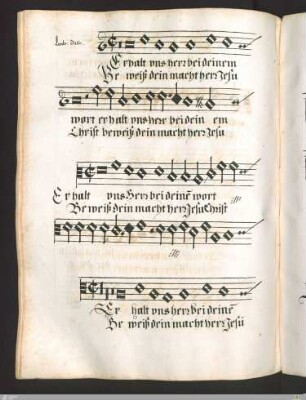 Er halt vns herr bei deinem
Be weiß dein macht herr Jesu
wort er halt vns herr bei dein em
Christ beweiß dein macht herr Jesu
Er halt vns Herr bei deinē wort
Be weiß dein macht herr Jesu Christ
Er halt vns herr bei deinē
Be weiß dein macht herr Jesu